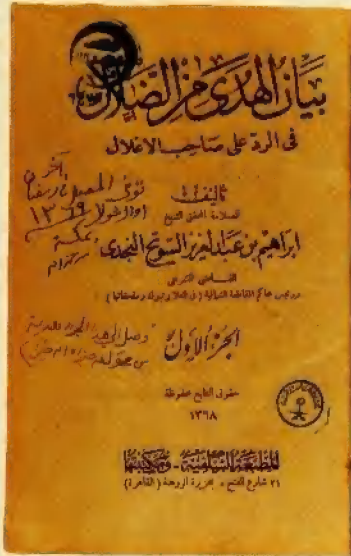 بيان الهدى من الضلال
في الرد على صاحب الأغلال
تأليف
العلامة المحقق الشيخ
ابراهيم بن عبد العزيز السويح النجدي
القاضي الشرعي
ورئيس محاكم المقاطعة الشمالية ( في العلا وتبوك وملحقاتها )
توفي
١٣٦٩
بمكة
الجزء الأول
وصل إلى هذا
حقوق الطبع محفوظة
١٣٦٨
المطبعة السلفية - ومكتبتها
٢١ شارع الفتح بجزيرة الروضة ( القاهرة )